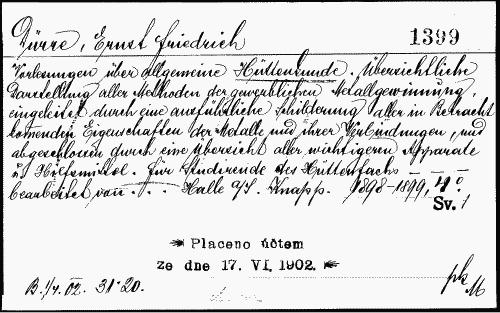 Dürre, Ernst Friedrich
1399
Vorlesungen über allgemeine Hüttenkunde. Übersichtliche
Darstellung aller Methoden der gewerblichen Metallgewinnung,
eingeleitet durch eine ausführliche Schilderung aller in Betracht
kommenden Eigenschaften der Metalle und ihrer Verbindungen, und
abgeschlossen durch eine Übersicht aller wichtigeren Apparate
und Hülfsmittel. Für Studirende des Hüttenfachs
bearbeitet von . . . Halle a/S. Knapp. 1898-1899, 4°.
Sv. 1
Placeno účtem
ze dne 17. VI. 1902.
B. 1/7. 02. 31·20.